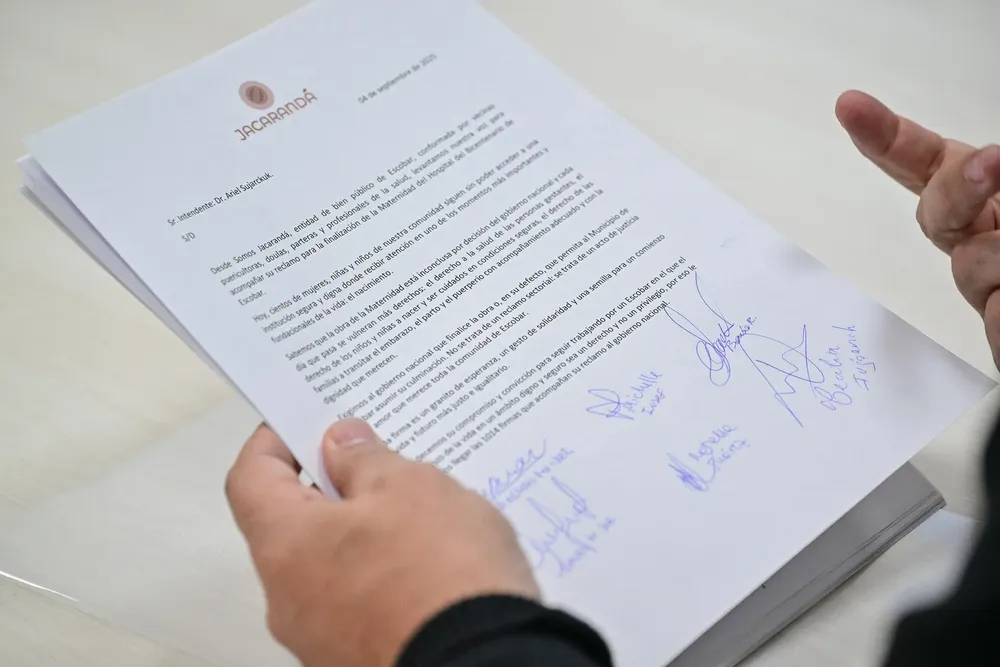 JACARANDÁ
04 de septiembre de 2025
Sr. Intendente: Dr. Ariel Sujarckuk.
S/D
Desde Somos Jacarandá, entidad de bien público de Escobar, conformada por vecinas
puericultoras, doulas, parteras y profesionales de la salud, levantamos nuestra voz para
acompañar su reclamo para la finalización de la Maternidad del Hospital del Bicentenario de
Escobar.
Hoy, cientos de mujeres, niñas y niños de nuestra comunidad siguen sin poder acceder a una
institución segura y digna donde recibir atención en uno de los momentos más importantes y
fundacionales de la vida: el nacimiento.
Sabemos que la obra de la Maternidad está inconclusa por decisión del gobierno nacional y cada
día que pasa se vulneran más derechos: el derecho a la salud de las personas gestantes, el
derecho de los niños y niñas a nacer y ser cuidados en condiciones seguras, el derecho de las
familias a transitar el embarazo, el parto y el puerperio con acompañamiento adecuado y con la
dignidad que merecen.
Exigimos al gobierno nacional que finalice la obra o, en su defecto, que permita al Municipio de
bar asumir su culminación. No se trata de un reclamo sectorial: se trata de un acto de justicia
amor que merece toda la comunidad de Escobar.
a firma es un granito de esperanza, un gesto de solidaridad y una semilla para un comienzo
ida y futuro más justo e igualitario.
ecemos su compromiso y convicción para seguir trabajando por un Escobar en el que el
de la vida en un ámbito digno y seguro sea un derecho y no un privilegio, por eso le
llegar las 1014 firmas que acompañan su reclamo al gobierno nacional.